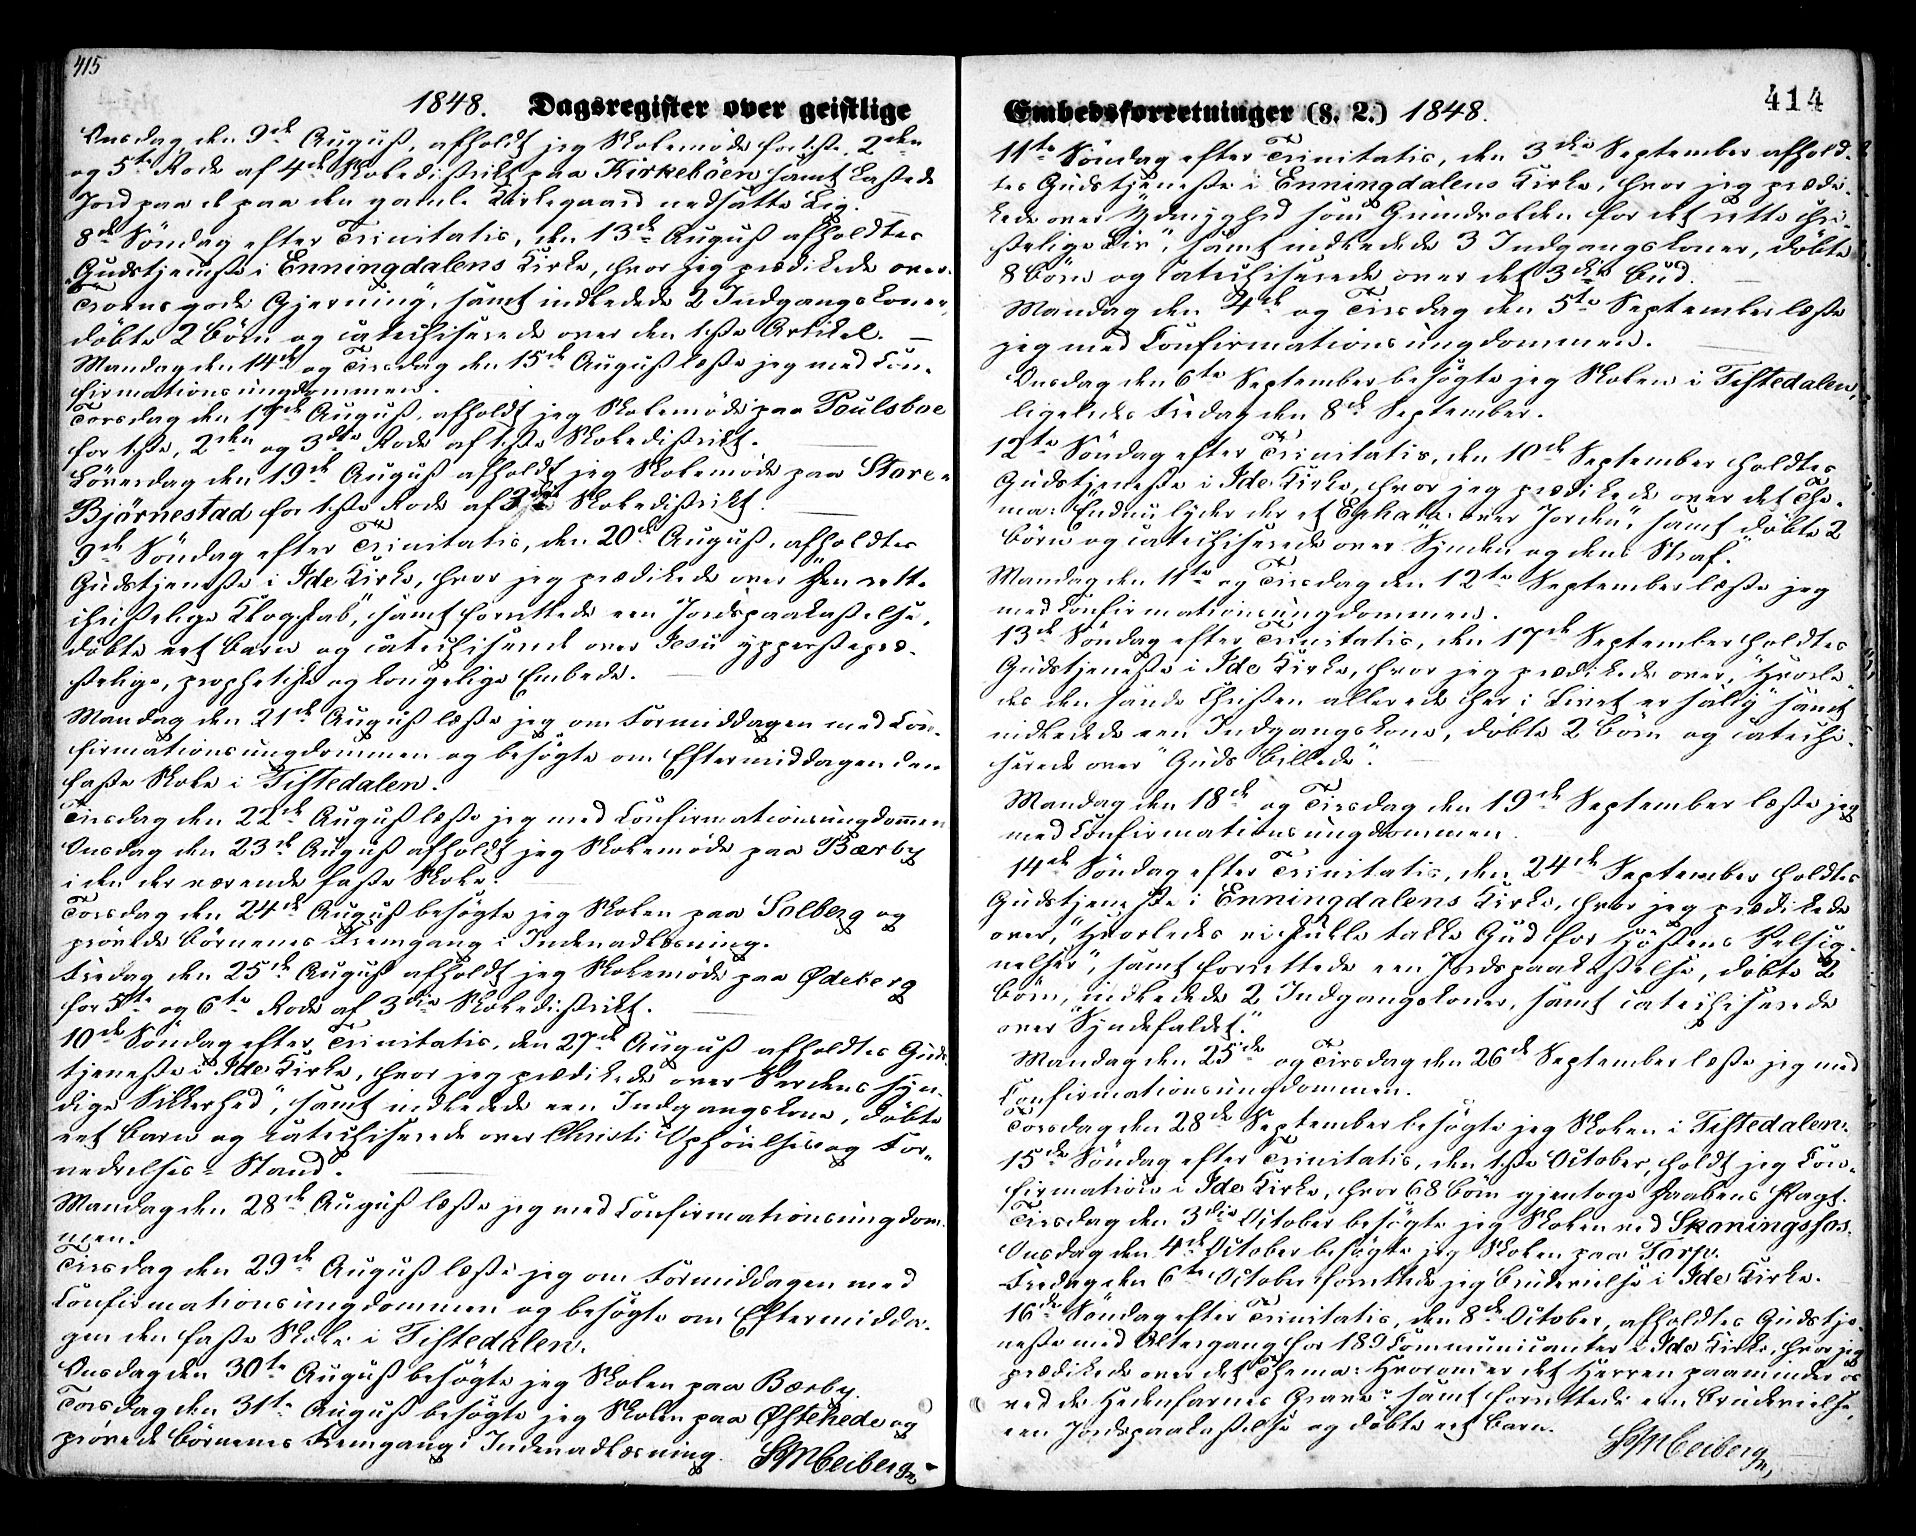 415
1848. Dagsregister over geistlige
Onsdag den 9de August, afholdt jeg Skolemöde for 1ste, 2den
og 5te Rode af 4de Skoledistrikt paa Kirkeböen samt kastede
Jord paa et paa den gamle Kirkegaard nedsatte Lig. –
8de Söndag efter Trinitatis, den 13de August afholdtes
Gudstjeneste i Enningdalens Kirke, hvor jeg prædikede over
"Troens gode Gjerning", samt indledede 2 Indgangskoner,
döbte 2 Börn og catechiserede over den 1ste Artikel. –
Mandag den 14de og Tirsdag den 15de August læste jeg med Con-
firmationsungdommen.
Torsdag den 17de August, afholdt jeg Skolemöde paa Poulsboe
for 1ste, 2den og 3die Rode af 1ste Skoledistrikt.
Löverdag den 19de August afholdt jeg Skolemöde paa Store-
Björnestad for 1ste Rode af 3die Skoledistrikt.
9de Söndag efter Trinitatis, den 20de August, afholdtes
Gudstjeneste i Ide Kirke, hvor jeg prædikede over "Den rette
christelige Klogskab", samt forrettede een Jordspaakastelse,
döbte eet Barn og catechiserede over Jesu ypperstepræ-
stelige, prophetiske og kongelige Embede.
Mandag den 21de August læste jeg om Formiddagen med Con-
firmationsungdommen og besögte om Eftermiddagen den
faste Skole i Tistedalen.
Tirsdag den 22de August læste jeg med Confirmationsungdommen
Onsdag den 23de August afholdt jeg Skolemöde paa Bærby
i den der værende faste Skole.
Torsdag den 24de August besögte jeg Skolen paa Solberg og
prövede Börnenes Fremgang i Indenadlæsning.
Fredag den 25de August afholdt jeg Skolemöde paa Ödeberg
for 5te og 6te Rode af 3die Skoledistrikt.
10de Söndag efter Trinitatis, den 27de August afholdtes Guds-
tjeneste i Ide Kirke, hvor jeg prædikede over "Verdens syn-
dige Sikkerhed", samt indledede een Indgangskone, döbte
eet Barn og catechiserede over Christi Ophöielses og For-
nedrelses-Stand.
Mandag den 28de August læste jeg med Confirmationsungdom-
men.
Tirsdag den 29de August læste jeg om Formiddagen med
Confirmationsungdommen og besögte om Eftermidda-
gen den faste Skole i Tistedalen.
Onsdag den 30te August besögte jeg Skolen paa Bærby.
Torsdag den 31te August besögte jeg Skolen paa Östehede og
prövede Börnenes Fremgang i Indenadlæsning.
414
Embedsforretninger (§. 2.) 1848.
11te Söndag efter Trinitatis, den 3die September afhold-
tes Gudstjeneste i Enningdalens Kirke, hvor jeg prædi-
kede over "Ydmyghed som Grundvolden for det rette chri-
stelige Liv", samt indledede 3 Indgangskoner, döbte
8 Börn og catechiserede over det 3die Bud.
Mandag den 4de og Tirsdag den 5te September læste
jeg med Confirmationsungdommen.
Onsdag den 6te September besögte jeg Skolen i Tistedalen,
ligeledes Fredag den 8de September.
12te Söndag efter Trinitatis, den 10de September holdtes
Gudstjeneste i Ide Kirke, hvor jeg prædikede over det The-
ma: "Endnu lyder der et Ephata over Jorden", samt döbte 2
Börn og catechiserede over "Synden og dens Straf."
Mandag den 11te og Tirsdag den 12te September læste jeg
med Confirmationsungdommen.
13de Söndag efter Trinitatis, den 17de September holdtes
Gudstjeneste i Ide Kirke, hvor jeg prædikede over, "Hvorle-
des den sande Christen allerede her i Livet er salig" samt
indledede een Indgangskone, döbte 2 Börn og catechi-
serede over "Guds Billede".
Mandag den 18de og Tirsdag den 19de September læste jeg
med Confirmationsungdommen.
14de Söndag efter Trinitatis, den 24de September holdtes
Gudstjeneste i Enningdalens Kirke, hvor jeg prædikede
over, "Hvorledes vi skulle takke Gud for Höstens Velsig-
nelser", samt forrettede een Jordspaakastelse, döbte 2
Börn, indledede 2 Indgangskoner, samt catechiserede
over "Syndefaldet."
Mandag den 25de og Tirsdag den 26de September læste jeg med
Confirmationsungdommen.
Torsdag den 28de September besögte jeg Skolen i Tistedalen.
15de Söndag efter Trinitatis, den 1ste October, holdt jeg Con-
firmation i Ide Kirke, hvor 68 Börn gjentoge Daabens Pagt.
Tirsdag den 3die October besögte jeg Skolen ved Skaningsfos.
Onsdag den 4de October besögte jeg Skolen paa Torp.
Fredag den 6te October forrettede jeg Brudevielse i Ide Kirke.
16de Söndag efter Trinitatis, den 8de October, afholdtes Gudstje-
neste med Altergang for 189 Communicanter i Ide Kirke, hvor jeg
prædikede over det Thema: Hvorom er det Herren paaminder os
ved de Hedenfarnes Grave" samt forrettede een Brudevielse,
een Jordspaakastelse og döbte eet Barn.